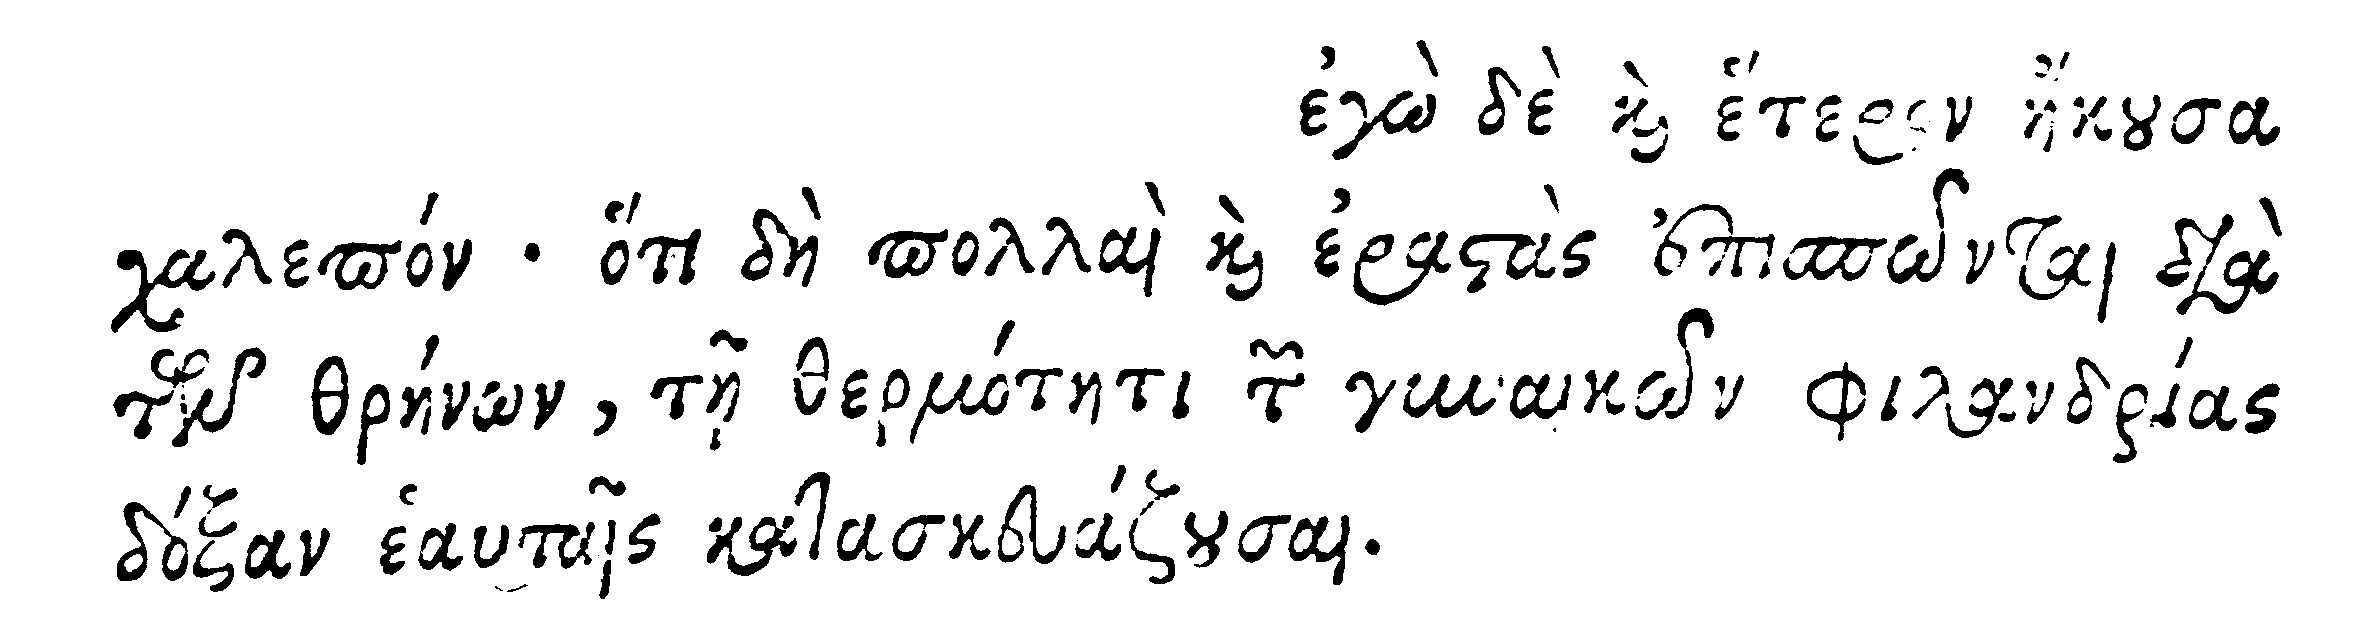 ἐγὼ δὲ καὶ ἕτερον ἤκουσα
χαλεπόν · ὅτι δὴ πολλαὶ καὶ ἐραστὰς ἐπισπῶνται διὰ
τῶν θρήνων, τῇ θερμότητι τῶν γυναικῶν φιλανδρίας
δόξαν ἑαυταῖς κατασκευάζουσαι.